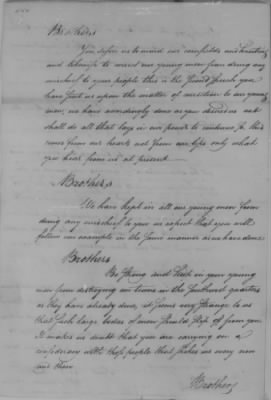 Brothers
You desire us to mind our cornfields and hunting
and likewise to restrain our young men from doing any
mischief to your people this is the second speech you
have sent us upon the matter of our young
men, we have accordingly done as you desired us and
shall do all that lays in our power to continue so this
comes from our hearts not from our lips only what
you hear from us at present
Brothers
We have kept in all our young men from
doing any mischief to you we expect that you will
follow our example in the same manner as we have done
Brothers
Be strong and hold in your young
men from destroying our towns in the Southward quarters
as they have already done, it seems very strange to us
that such large bodies of men should slip off from you
it makes us doubt that you are carrying on a
with these people that strikes us every now
and then
Brothers